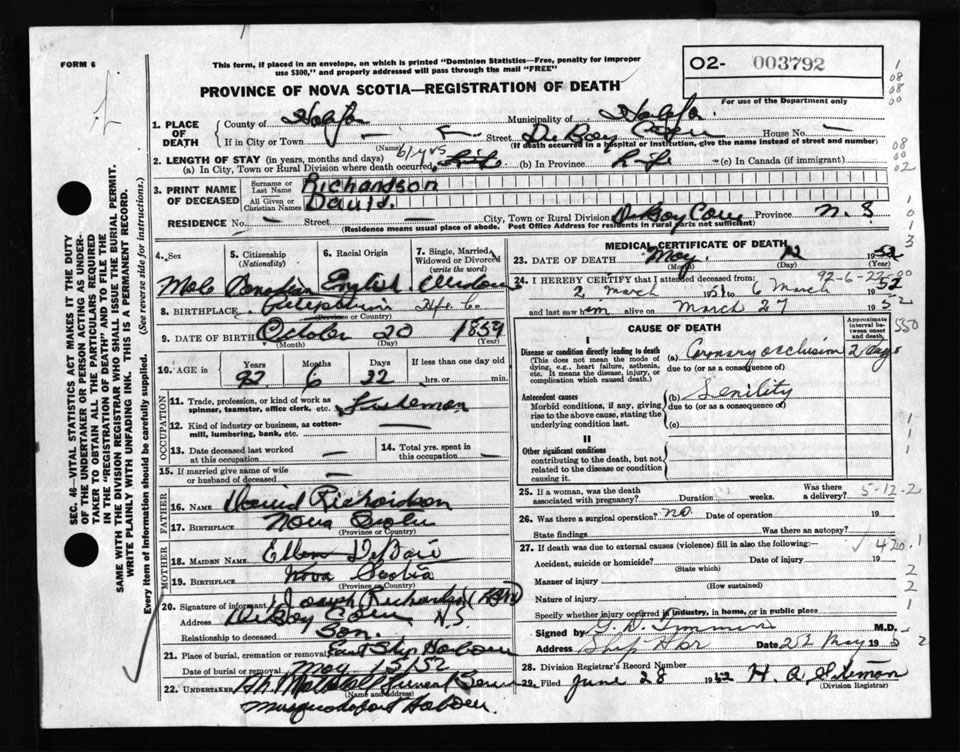 FORM 6
This form, if placed in an envelope, on which is printed "Dominion Statistics—Free, penalty for improper
use $300," and properly addressed will pass through the mail "FREE"
O2- 003792
For use of the Department only
PROVINCE OF NOVA SCOTIA—REGISTRATION OF DEATH
1. PLACE OF DEATH
County of Halifax Municipality of Halifax
If in City or Town — Street De Bay Cove House No. —
(Name) (If death occurred in a hospital or institution, give the name instead of street and number)
2. LENGTH OF STAY (in years, months and days) 61 yrs
(a) In City, Town or Rural Division where death occurred Life (b) In Province Life (c) In Canada (if immigrant)
3. PRINT NAME OF DECEASED
Surname or Last Name Richardson
All Given or Christian Names David.
RESIDENCE No. — Street — City, Town or Rural Division De Bay Cove Province N. S
(Residence means usual place of abode. Post Office Address for residents in rural parts not sufficient)
4. Sex 5. Citizenship (Nationality) 6. Racial Origin 7. Single, Married, Widowed or Divorced (write the word)
Male Canadian English Widow
8. BIRTHPLACE Hfx. Co.
(Province or Country)
9. DATE OF BIRTH October 20 1859
(Month) (Day) (Year)
10. AGE in Years Months Days If less than one day old
92 6 22 hrs. or min.
OCCUPATION
11. Trade, profession, or kind of work as spinner, teamster, office clerk, etc. Fisherman
12. Kind of industry or business, as cotton-mill, lumbering, bank, etc. —
13. Date deceased last worked at this occupation — 14. Total yrs. spent in this occupation —
15. If married give name of wife or husband of deceased —
FATHER
16. NAME David Richardson
17. BIRTHPLACE Nova Scotia
(Province or Country)
MOTHER
18. MAIDEN NAME Ellen
19. BIRTHPLACE Nova Scotia
(Province or Country)
20. Signature of informant Joseph Richardson
Address De Bay Cove N.S.
Relationship to deceased Son.
21. Place of burial, cremation or removal East Ship Harbour
Date of burial or removal May 15/52
22. UNDERTAKER
(Name and address)
Musquodoboit Harbour.
MEDICAL CERTIFICATE OF DEATH
23. DATE OF DEATH May 12 1952
(Month) (Day) (Year)
92-6-22-00
24. I HEREBY CERTIFY that I attended deceased from:
2 March 1951 to 6 March 1952
and last saw him alive on March 27 1952
CAUSE OF DEATH
Approximate interval between onset and death
550
I
Disease or condition directly leading to death (a) Coronary occlusion 2 days
(This does not mean the mode of dying, e.g., heart failure, asthenia, etc. It means the disease, injury, or complication which caused death.)
due to (or as a consequence of)
Antecedent causes (b) Senility
Morbid conditions, if any, giving rise to the above cause, stating the underlying condition last.
due to (or as a consequence of)
(c)
II
Other significant conditions
contributing to the death, but not related to the disease or condition causing it.
25. If a woman, was the death associated with pregnancy? Duration weeks. Was there a delivery?
5-12-2
26. Was there a surgical operation? no. Date of operation 19
State findings Was there an autopsy?
27. If death was due to external causes (violence) fill in also the following:—
420.1
Accident, suicide or homicide? Date of injury 19
(State which)
Manner of injury
(How sustained)
Nature of injury
Specify whether injury occurred in industry, in home, or in public place
Signed by M.D.
Address Ship Hbr Date 22 May 195
28. Division Registrar's Record Number
29. Filed June 28 1952 H. A. Siteman
(Division Registrar)
SEC. 46—VITAL STATISTICS ACT MAKES IT THE DUTY
OF THE UNDERTAKER OR PERSON ACTING AS UNDER-
TAKER TO OBTAIN ALL THE PARTICULARS REQUIRED
IN THE "REGISTRATION OF DEATH" AND TO FILE THE
SAME WITH THE DIVISION REGISTRAR WHO SHALL ISSUE THE BURIAL PERMIT.
WRITE PLAINLY WITH UNFADING INK. THIS IS A PERMANENT RECORD.
Every item of information should be carefully supplied. (See reverse side for instructions.)